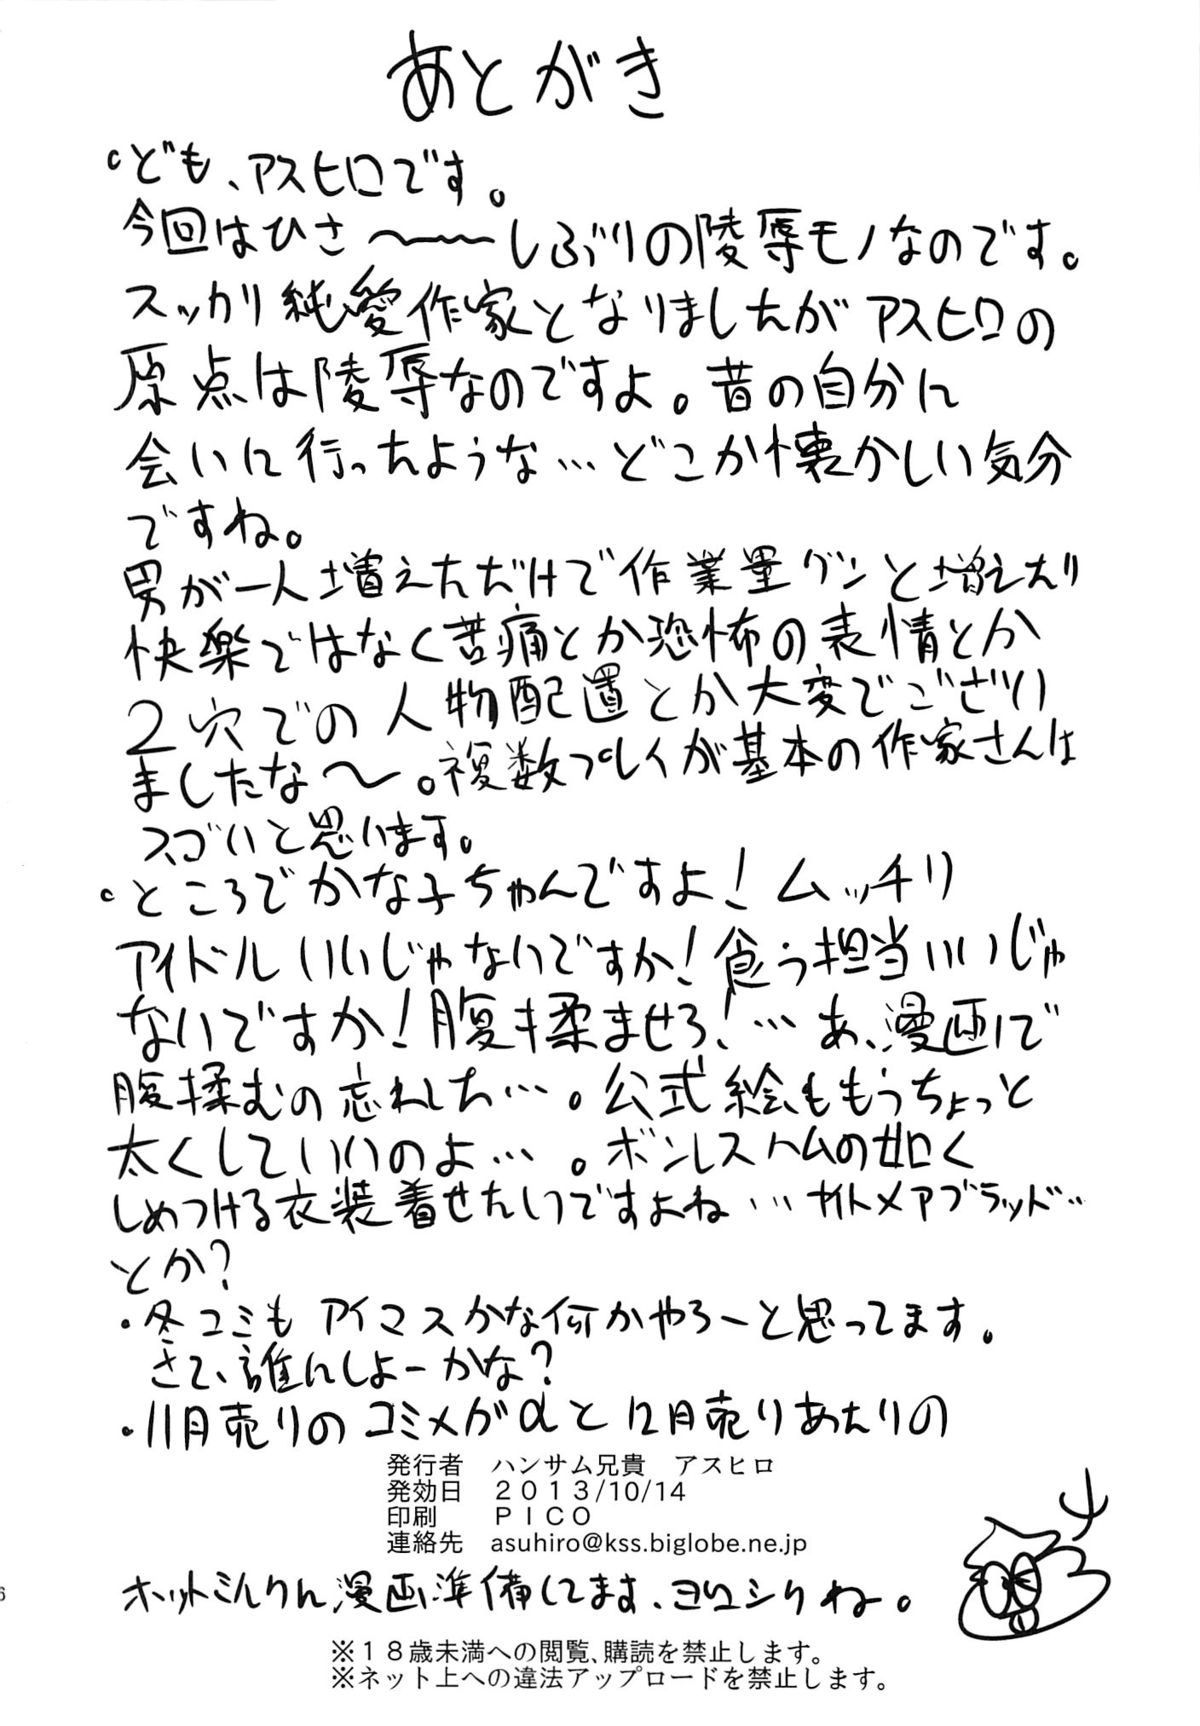 あとがき
。ども、アスヒロです。
今回はひさ〜〜〜しぶりの陵辱モノなのです。
スッカリ純愛作家となりましたがアスヒロの
原点は陵辱なのですよ。昔の自分に
会いに行ったような…どこか懐かしい気分
ですね。
男が一人増えただけで作業量グンと増えたり
快楽ではなく苦痛とか恐怖の表情とか
2穴での人物配置とか大変でござい
ましたな〜。複数プレイが基本の作家さんは
スゴいと思います。
。ところでかな子ちゃんですよ！ムッチリ
アイドルいいじゃないですか！食う担当いいじゃ
ないですか！腹揉ませろ！…あ、漫画で
腹揉むの忘れした…。公式絵ももうちょっと
太くしていいのよ…。ボンレスハムの如く
しめつける衣装着せたいですよね…ナイトメアブラッド…
とか？
・冬コミもアイマスかな何かやろーと思ってます。
さて、誰にしよーかな？
・11月売りのコミメガαと12月売りあたりの
発行者 ハンサム兄貴 アスヒロ
発効日 ２０１３/10/14
印刷 ＰＩＣＯ
連絡先 asuhiro@kss.biglobe.ne.jp
ホットミルクに漫画準備してます、ヨロシクね。
※１８歳未満への閲覧、購読を禁止します。
※ネット上への違法アップロードを禁止します。
6